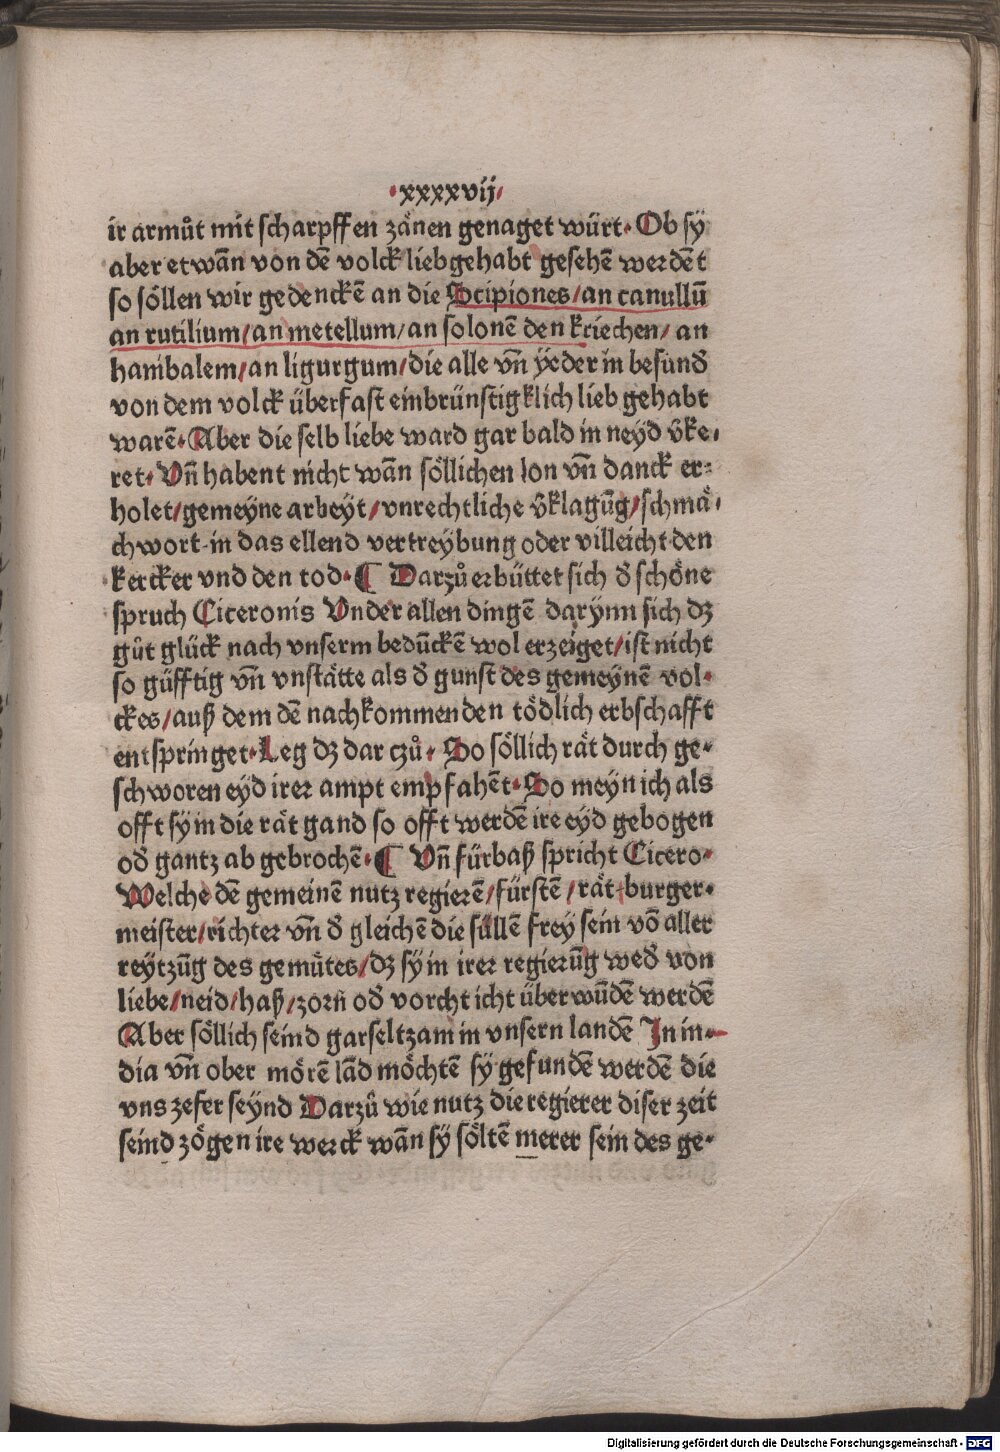 ·xxxxvij·
ir armůt mit scharpffen zänen genaget würt· Ob sÿ
aber etwan̄ von dē volck lieb gehabt gesehē werdēt
so söllen wir gedenckē an die Scipiones/an canullū
an rutilium/an metellum/an solonē den kriechen/ an
hanibalem/an ligurgum/die alle vn̄ ÿeder in besūnd̕
von dem volck überfast einbrünstigklich lieb gehabt
warē· Aber die selb liebe ward gar bald in neyd v̄ke⸗
ret· Vn̄ habent nicht wan̄ söllichen lon vn̄ danck er⸗
holet/gemeyne arbeyt/vnrechtliche v̄klagūg/schmä⸗
chwort·in das ellend vertreybung oder villeicht den
kercker vnd den tod· ¶ Darzů erbüttet sich d̕ schöne
spruch Ciceronis Vnder allen dingē darÿnn sich dz
gůt glück nach vnserm bedūckē wol erzeiget/ist nicht
so güfftig vn̄ vnstätte als d̕ gunst des gemeynē vol⸗
ckes/auß dem dē nachkommenden tödlich erbschafft
entspringet· Leg dz dar czů· So söllich rät durch ge⸗
schworen eyd irer ampt empfahēt· So meyn ich als
offt sÿ in die rät gand so offt werdē ire eyd gebogen
od̕ gantz ab gebrochē· ¶ Vn̄ fürbaß spricht Cicero·
Welche dē gemeinē nutz regierē/fürstē/rät·burger⸗
meister/richter vn̄ d̕ gleichē die süllē frey sein vō aller
reytzūg des gemütes/dz sÿ in irer regierūg wed̕ von
liebe/neid/haß/zorn od̕ vorcht icht überwūdē werdē
Aber söllich seind gar seltzam in vnsern landē In in⸗
dia vn̄ ober mörē lād möchtē sÿ gefundē werdē die
vns zefer seÿnd Darzů wie nutz die regierer diser zeit
seind zögen ire werck wan̄ sÿ söltē merer sein des ge⸗
Digitalisierung gefördert durch die Deutsche Forschungsgemeinschaft - DFG